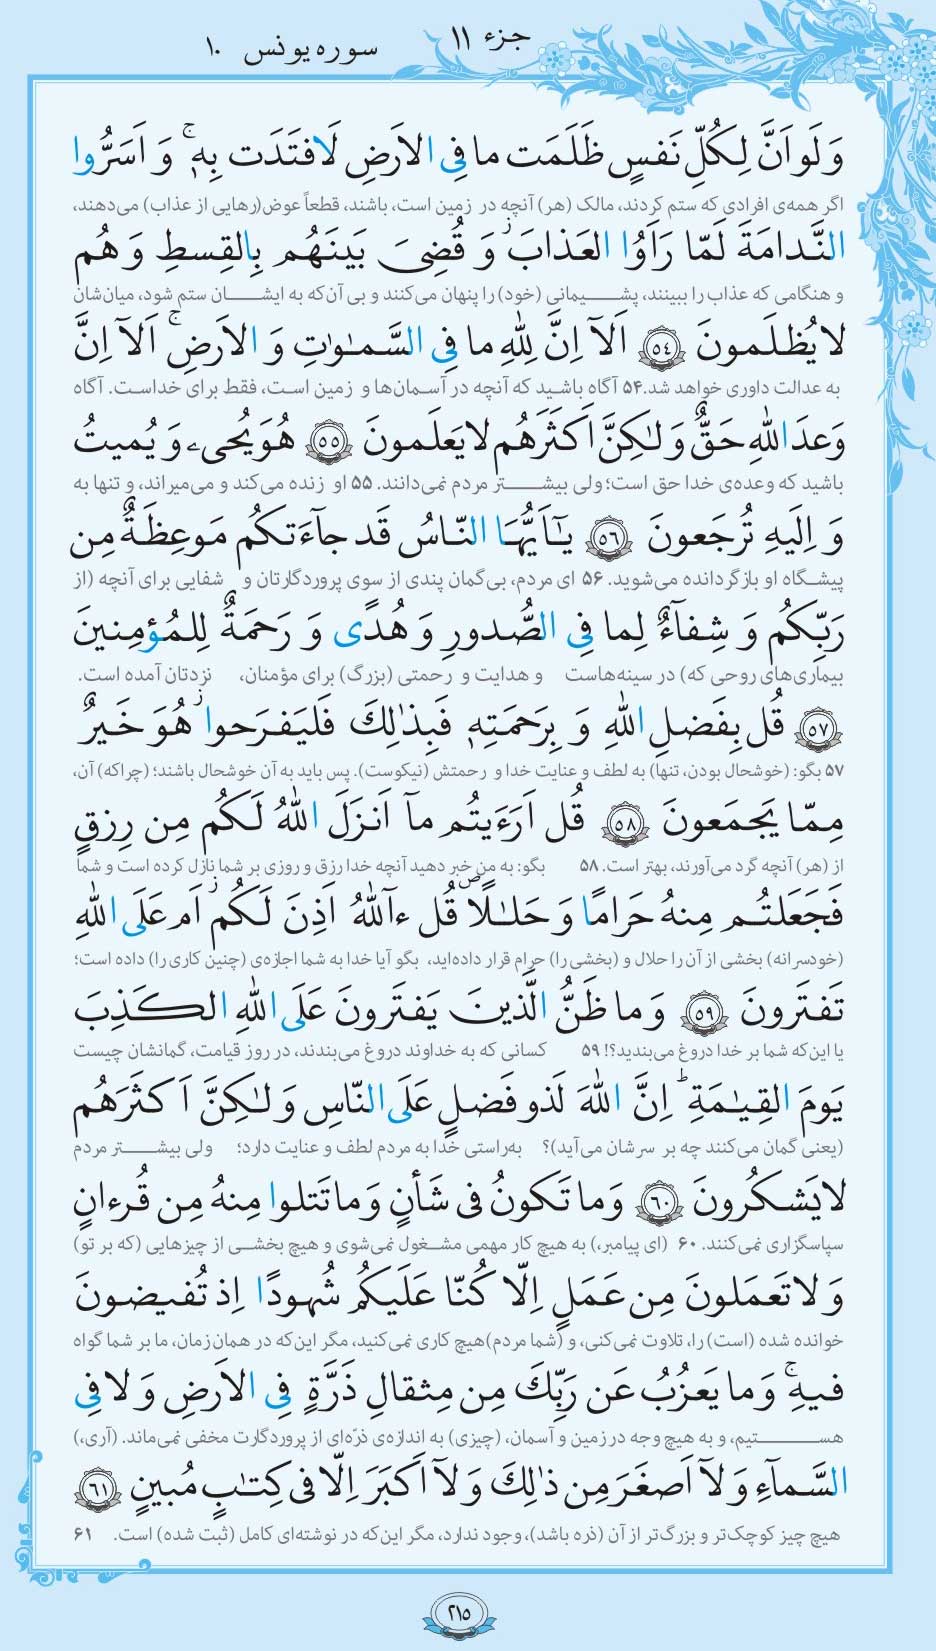 جزء ۱۱
سوره یونس ۱۰
وَ لَو اَنَّ لِکُلِّ نَفسٍ ظَلَمَت ما فِی الاَرضِ لَافتَدَت بِهٖ ۚ وَ اَسَرُّوا
اگر همه‌ی افرادی که ستم کردند، مالک (هر) آنچه در زمین است، باشند، قطعاً عوض(رهایی از عذاب) می‌دهند،
النَّدامَةَ لَمّا رَاَوُا العَذابَ ۖ وَ قُضِیَ بَینَهُم بِالقِسطِ وَ هُم
و هنگامی که عذاب را ببینند، پشـیمانی (خود) را پنهان می‌کنند و بی آن‌که به ایشـان ستم شود، میان‌شان
لا یُظلَمونَ ﴿٥٤﴾ اَلآ اِنَّ لِلّٰهِ ما فِی السَّمٰوٰتِ وَ الاَرضِ ۚ اَلآ اِنَّ
به عدالت داوری خواهد شد.۵۴ آگاه باشید که آنچه در آسمان‌ها و زمین است، فقط برای خداست. آگاه
وَعدَ اللّٰهِ حَقٌّ وَ لٰکِنَّ اَکثَرَهُم لا یَعلَمونَ ﴿٥٥﴾ هُوَ یُحیی وَ یُمیتُ
باشید که وعده‌ی خدا حق است؛ ولی بیشـتر مردم نمی‌دانند. ۵۵ او زنده می‌کند و می‌میراند، و تنها به
وَ اِلَیهِ تُرجَعونَ ﴿٥٦﴾ یٰٓاَیُّهَا النّاسُ قَد جآءَتکُم مَوعِظَةٌ مِن
پیشـگاه او بازگردانده می‌شوید. ۵۶ ای مردم، بی‌گمان پندی از سوی پروردگارتان و شفایی برای آنچه (از
رَبِّکُم وَ شِفآءٌ لِما فِی الصُّدورِ وَ هُدًی وَ رَحمَةٌ لِلمُؤمِنینَ
بیماری‌های روحی که) در سینه‌هاست و هدایت و رحمتی (بزرگ) برای مؤمنان، نزدتان آمده است.
﴿٥٧﴾ قُل بِفَضلِ اللّٰهِ وَ بِرَحمَتِهٖ فَبِذٰلِكَ فَلیَفرَحوا ۖ هُوَ خَیرٌ
۵۷ بگو: (خوشحال بودن، تنها) به لطف و عنایت خدا و رحمتش (نیکوست). پس باید به آن خوشحال باشند؛ (چراکه) آن،
مِمّا یَجمَعونَ ﴿٥٨﴾ قُل اَرَءَیتُم مآ اَنزَلَ اللّٰهُ لَکُم مِن رِزقٍ
از (هر) آنچه گرد می‌آورند، بهتر است. ۵۸ بگو: به من خبر دهید آنچه خدا رزق و روزی بر شما نازل کرده است و شما
فَجَعَلتُم مِنهُ حَرامًا وَ حَلٰلًا قُل ءآللّٰهُ اَذِنَ لَکُم ۖ اَم عَلَی اللّٰهِ
(خودسرانه) بخشی از آن را حلال و (بخشی را) حرام قرار داده‌اید، بگو آیا خدا به شما اجازه‌ی (چنین کاری را) داده است؛
تَفتَرونَ ﴿٥٩﴾ وَ ما ظَنُّ الَّذینَ یَفتَرونَ عَلَی اللّٰهِ الکَذِبَ
یا این‌که شما بر خدا دروغ می‌بندید؟! ۵۹ کسانی که به خداوند دروغ می‌بندند، در روز قیامت، گمانشان چیست
یَومَ القِیٰمَةِ ۗ اِنَّ اللّٰهَ لَذو فَضلٍ عَلَی النّاسِ وَ لٰکِنَّ اَکثَرَهُم
(یعنی گمان می‌کنند چه بر سرشان می‌آید)؟ به‌راستی خدا به مردم لطف و عنایت دارد؛ ولی بیشـتر مردم
لا یَشکُرونَ ﴿٦٠﴾ وَ ما تَکونُ فی شَأنٍ وَ ما تَتلوا مِنهُ مِن قُرءانٍ
سپاسگزاری نمی‌کنند. ۶۰ (ای پیامبر،) به هیچ کار مهمی مشـغول نمی‌شوی و هیچ بخشـی از چیزهایی (که بر تو)
وَ لا تَعمَلونَ مِن عَمَلٍ اِلّا کُنّا عَلَیکُم شُهودًا اِذ تُفیضونَ
خوانده شده (است) را، تلاوت نمی‌کنی، و (شما مردم)هیچ کاری نمی‌کنید، مگر این‌که در همان‌زمان، ما بر شما گواه
فیهِ ۚ وَ ما یَعزُبُ عَن رَبِّكَ مِن مِثقالِ ذَرَّةٍ فِی الاَرضِ وَ لا فِی
هسـتیم، و به هیچ وجه در زمین و آسمان، (چیزی) به اندازه‌ی ذرّه‌ای از پروردگارت مخفی نمی‌ماند. (آری،)
السَّمآءِ وَ لآ اَصغَرَ مِن ذٰلِكَ وَ لآ اَکبَرَ اِلّا فی کِتٰبٍ مُبینٍ ﴿٦١﴾
هیچ چیز کوچک‌تر و بزرگ‌تر از آن (ذره باشد)، وجود ندارد، مگر این‌که در نوشته‌ای کامل (ثبت شده) است. ۶۱
۲۱۵